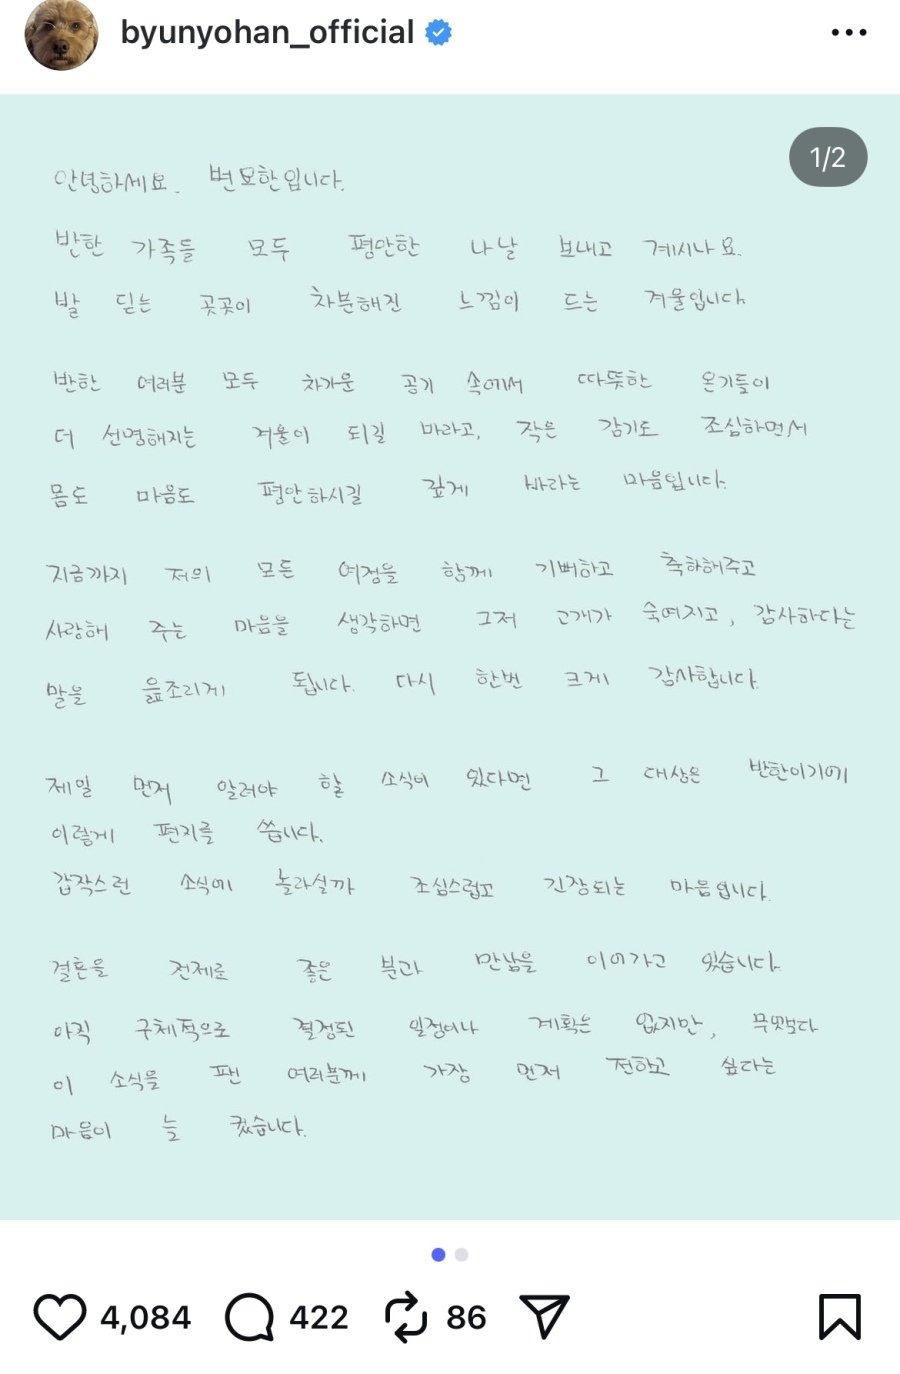 byunyohan_official
1/2
안녕하세요. 변요한입니다.
반한 가족들 모두 평안한 나날 보내고 계시나요.
발 딛는 곳곳이 차분해진 느낌이 드는 겨울입니다.
반한 여러분 모두 차가운 공기 속에서 따뜻한 온기들이
더 선명해지는 겨울이 되길 바라고, 작은 감기도 조심하면서
몸도 마음도 평안하시길 깊게 바라는 마음입니다.
지금까지 저의 모든 여정을 함께 기뻐하고 축하해주고
사랑해 주는 마음을 생각하면 그저 고개가 숙여지고, 감사하다는
말을 읊조리게 됩니다. 다시 한번 크게 감사합니다.
제일 먼저 알려야 할 소식이 있다면 그 대상은 반한이기에
이렇게 편지를 씁니다.
갑작스런 소식에 놀라실까 조심스럽고 긴장되는 마음입니다.
결혼을 전제로 좋은 분과 만남을 이어가고 있습니다.
아직 구체적으로 결정된 일정이나 계획은 없지만, 무엇보다
이 소식을 팬 여러분께 가장 먼저 전하고 싶다는
마음이 늘 컸습니다.
4,084 422 86